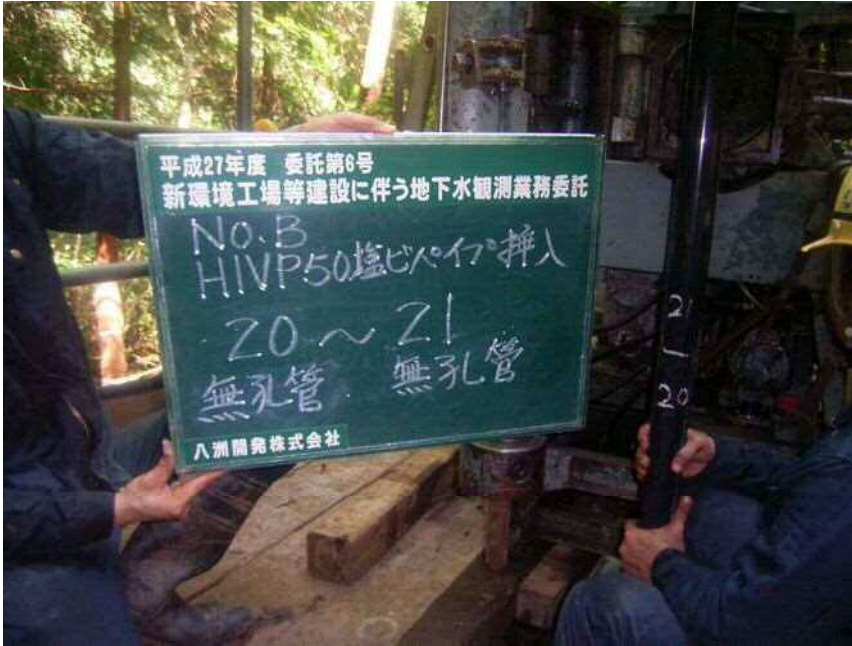 平成27年度 委託第6号
新環境工場等建設に伴う地下水観測業務委託
No.B
HIVP50塩ビパイプ挿入
20～21
無孔管 無孔管
八洲開発株式会社
21
20